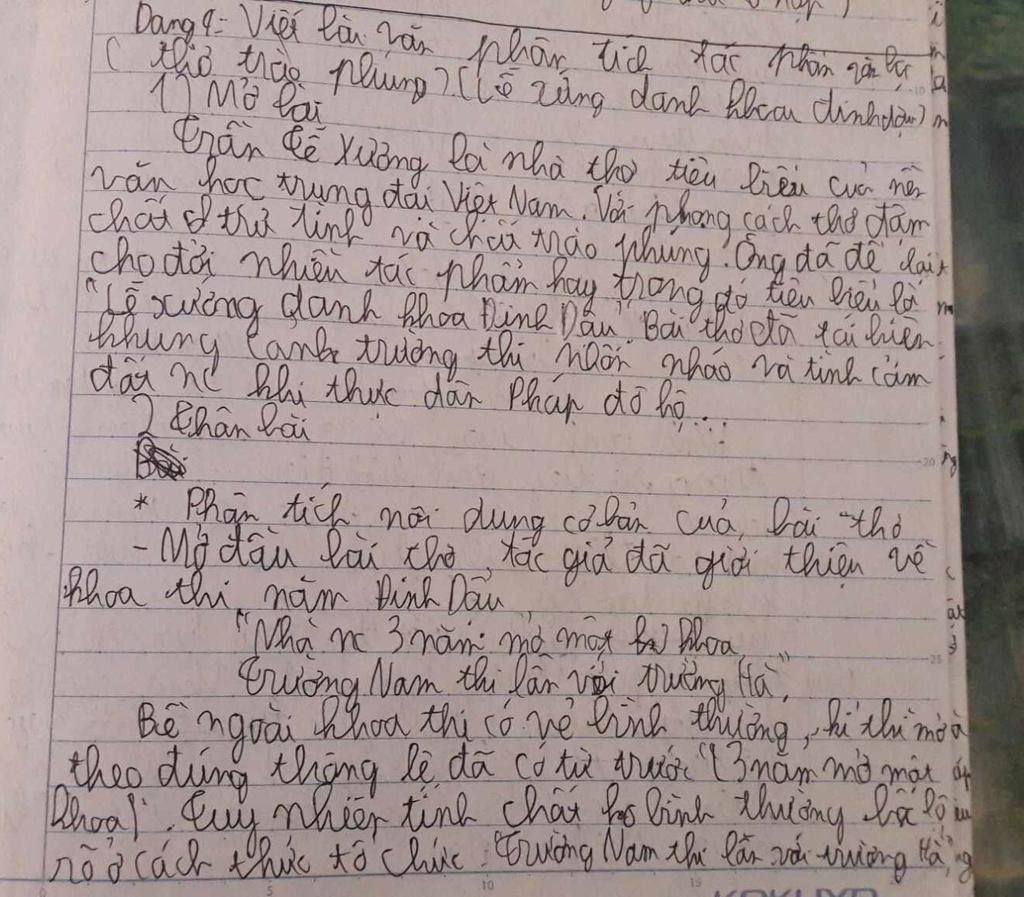 Dạng 9: Viết bài văn phân tích tác phẩm văn học
( thơ trào phúng) ( Lễ xứng danh khoa đinh dậu)
1) Mở bài
Trần Tế Xương là nhà thơ tiêu biểu của nền
văn học trung đại Việt Nam. Với phong cách thơ đậm
chất trữ tình và chất trào phúng. Ông đã để lại
cho đời nhiều tác phẩm hay trong đó tiêu biểu là
"Lễ xướng danh khoa Đinh Dậu". Bài thơ đã tái hiện
khung cảnh trường thi nhốn nháo và tình cảm
đất nc khi thực dân Pháp đô hộ...
2) Thân bài
* Phân tích nội dung cơ bản của bài thơ
- Mở đầu bài thơ, tác giả đã giới thiệu về
khoa thi năm Đinh Dậu
"Nhà nc 3 năm mở một khoa
Trường Nam thi lẫn với trường Hà"
Bề ngoài khoa thi có vẻ bình thường, kì thi mở
theo đúng thông lệ đã có từ trước "(3 năm mở một
khoa)". Tuy nhiên tính chất ko bình thường bộc lộ
rõ ở cách thức tổ chức: "Trường Nam thi lẫn với trường Hà"
KOKUYO